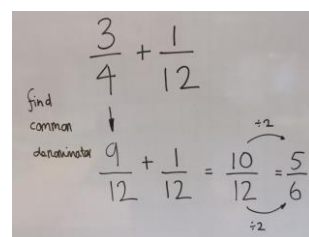 3/4 + 1/12
find
common
denominator
9/12 + 1/12 = 10/12 = 5/6
÷2
÷2